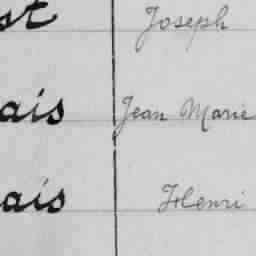 st Joseph
ais Jean Marie
ais Henri